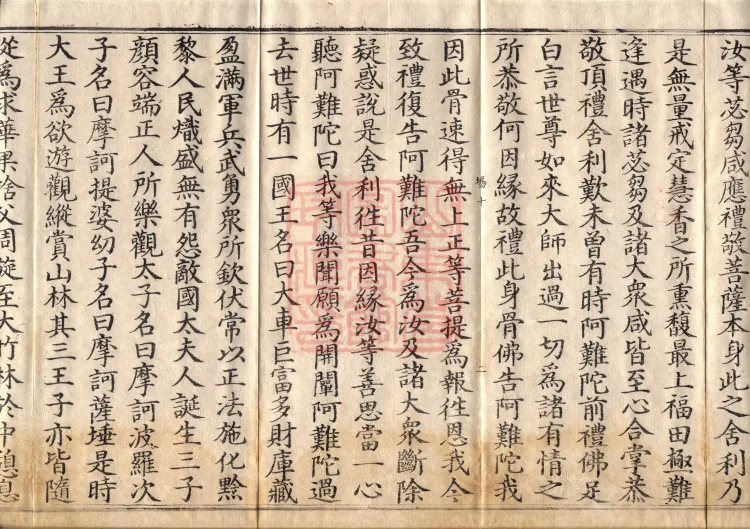 汝等苾芻咸應禮敬菩薩本身此之舍利乃
是無量戒定慧香之所熏馥最上福田極難
逢遇時諸苾芻及諸大眾咸皆至心合掌恭
敬頂禮舍利歎未曾有時阿難陀前禮佛足
白言世尊如來大師出過一切為諸有情之
所恭敬何因緣故禮此身骨佛告阿難陀我
場十
二
因此骨速得無上正等菩提為報徃恩我今
致禮復告阿難陀吾今為汝及諸大眾斷除
疑惑說是舍利徃昔因緣汝等善思當一心
聽阿難陀曰我等樂聞願為開闡阿難陀過
去世時有一國王名曰大車巨富多財庫藏
盈滿軍兵武勇眾所欽伏常以正法施化黔
黎人民熾盛無有怨敵國太夫人誕生三子
顏容端正人所樂觀太子名曰摩訶波羅次
子名曰摩訶提婆幼子名曰摩訶薩埵是時
大王為欲遊觀縱賞山林其三王子亦皆隨
從為求華果捨父周旋至大竹林於中憩息